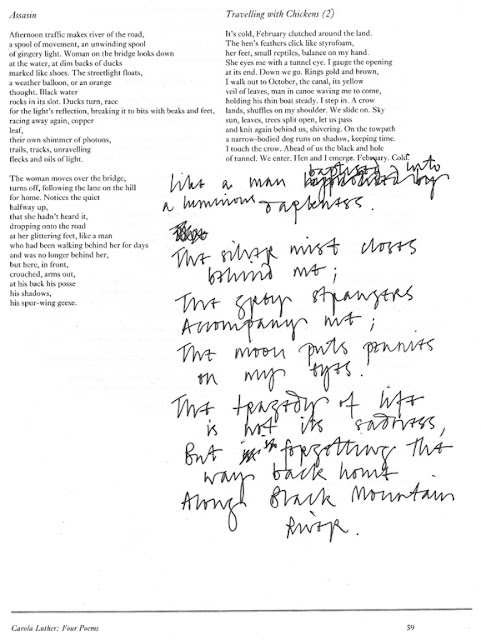 Assasin
Afternoon traffic makes river of the road,
a spool of movement, an unwinding spool
of gingery light. Woman on the bridge looks down
at the water, at dim backs of ducks
marked like shoes. The streetlight floats,
a weather balloon, or an orange
thought. Black water
rocks in its slot. Ducks turn, race
for the light's reflection, breaking it to bits with beaks and feet,
racing away again, copper
leaf,
their own shimmer of photons,
trails, tracks, unravelling
flecks and oils of light.
The woman moves over the bridge,
turns off, following the lane on the hill
for home. Notices the quiet
halfway up,
that she hadn't heard it,
dropping onto the road
at her glittering feet, like a man
who had been walking behind her for days
and was no longer behind her,
but here, in front,
crouched, arms out,
at his back his posse
his shadows,
his spur-wing geese.
Travelling with Chickens (2)
It's cold, February clutched around the land.
The hen's feathers click like styrofoam,
her feet, small reptiles, balance on my hand.
She eyes me with a tunnel eye. I gauge the opening
at its end. Down we go. Rings gold and brown,
I walk out to October, the canal, its yellow
veil of leaves, man in canoe waving me to come,
holding his thin boat steady. I step in. A crow
lands, shuffles on my shoulder. We slide on. Sky
sun, leaves, trees split open, let us pass
and knit again behind us, shivering. On the towpath
a narrow-bodied dog runs on shadow, keeping time.
I touch the crow. Ahead of us the black and hole
of tunnel. We enter. Hen and I emerge. February. Cold.
baptised into
Like a man
a luminous darkness.
The silver mist closes
behind me;
The grey strangers
Accompany me;
The moon puts pennies
on my eyes.
The tragedy of life
is not its sadness,
But forgetting the
way back home
Along Black Mountain
River.
Carola Luther: Four Poems
59